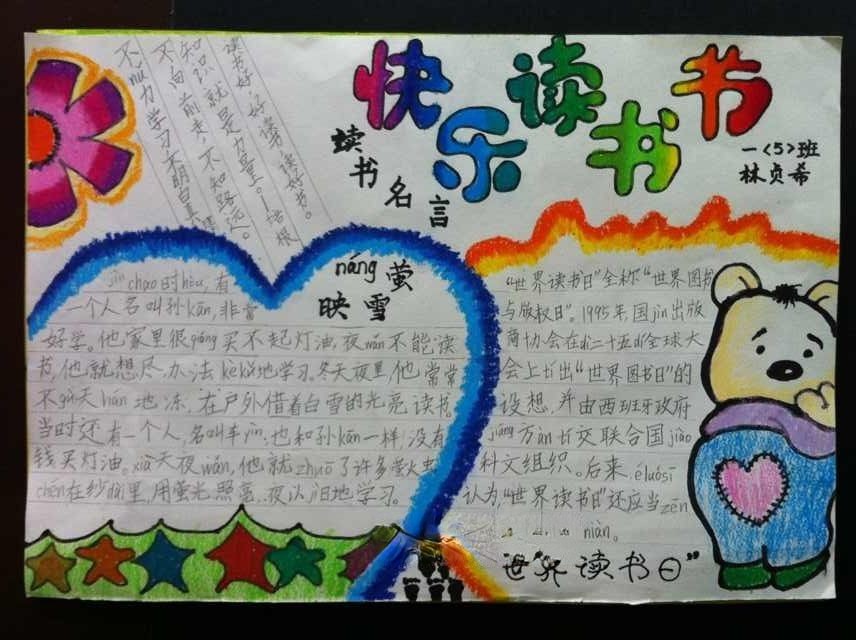 快乐读书
一〈5〉班
林贞希
读书名言
读书好，好读书，读好书。
知识就是力量。—培根
不向前走，不知路远。
不nu力学习，不明白真
náng萤
映雪
jìn chao时hòu，有
一个人名叫孙kāng，非常
好学。他家里很qióng买不起灯油，夜wǎn不能读
书，他就想尽办法kèkǔ地学习。冬天夜里，他常常
天hán地冻，在户外借着白雪的光亮读书。
当时还有一个人，名叫车yìn，也和孙kāng一样没有
钱买灯油。xià天夜wǎn，他就zhuō了许多萤火虫
在纱dài里，用萤光照亮，夜以jì日地学习。
“世界读书日”全称“世界图书
与版权日”。1995年国jìn出版
商协会在dì二十五jiè全球大
会上tí出“世界图书日”的
设想，并由西班牙政府
jiāng方àn tí交联合国jiào
科文组织。后来，éluósī
认为，“世界读书日”还应当zēn
niàn。
“世界读书日”